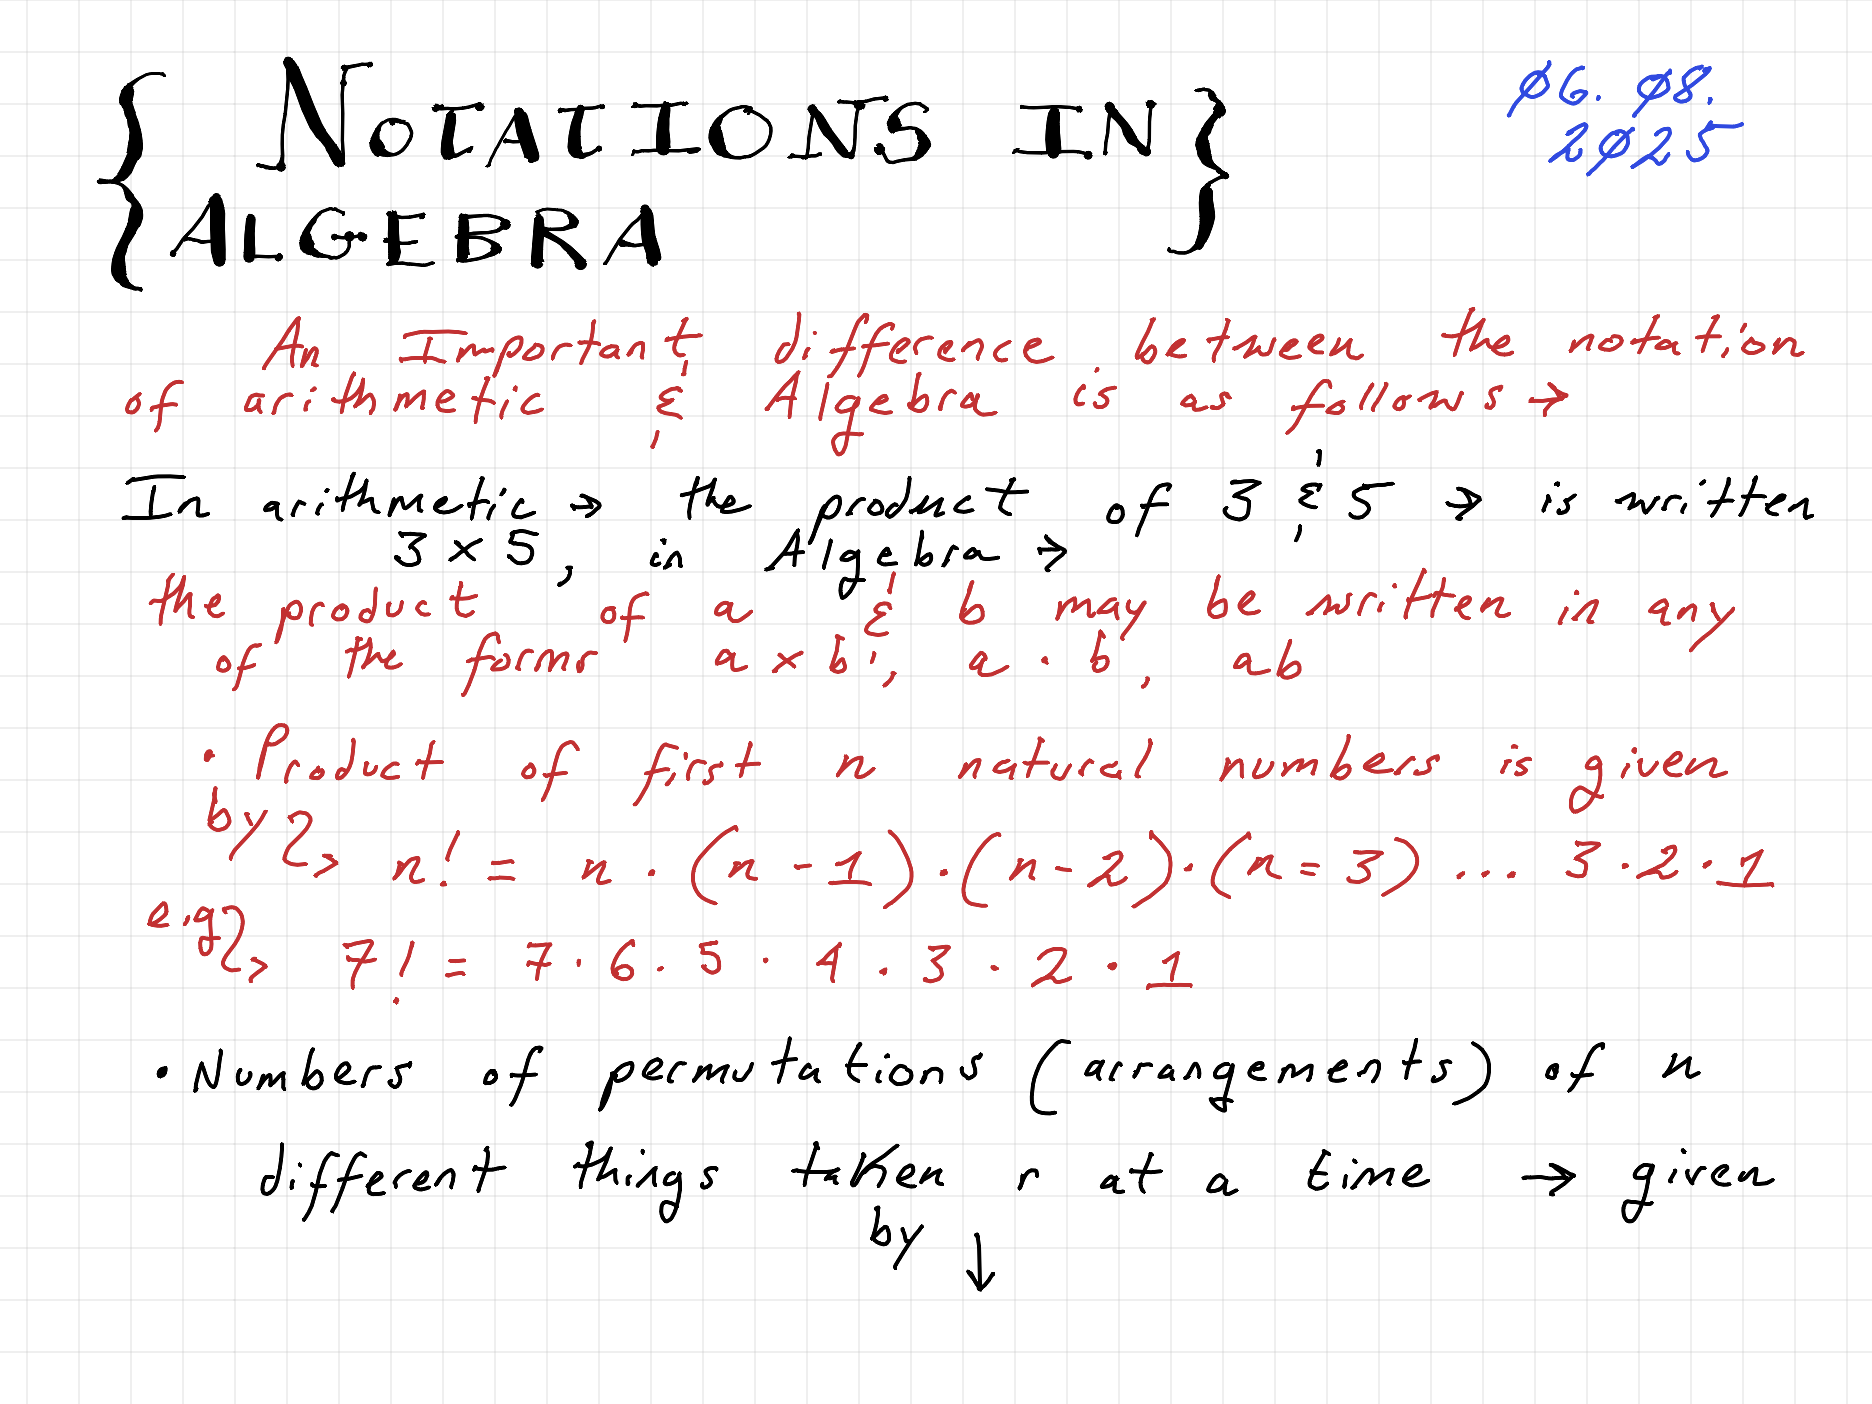 { NOTATIONS IN }
ALGEBRA
Ø6. Ø8.
2Ø25
An Important difference between the notation
of arithmetic & Algebra is as follows →
In arithmetic → the product of 3 & 5 → is written
3 × 5, in Algebra →
the product of a & b may be written in any
of the forms a × b, a · b, ab
• Product of first n natural numbers is given
by → n! = n · (n - 1) · (n - 2) · (n = 3) ... 3 · 2 · 1
e.g → 7! = 7 · 6 · 5 · 4 · 3 · 2 · 1
• Numbers of permutations (arrangements) of n
different things taken r at a time → given
by ↓